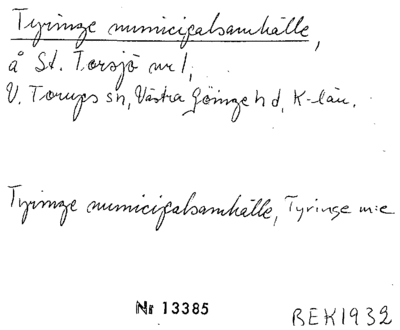 Tyringe municipalsamhälle,
å St. Torsjö nr 1,
V. Torups sn, Västra Göinge hd, K-län.
Tyringe municipalsamhälle, Tyringe m:e
Nr 13385
BEK1932